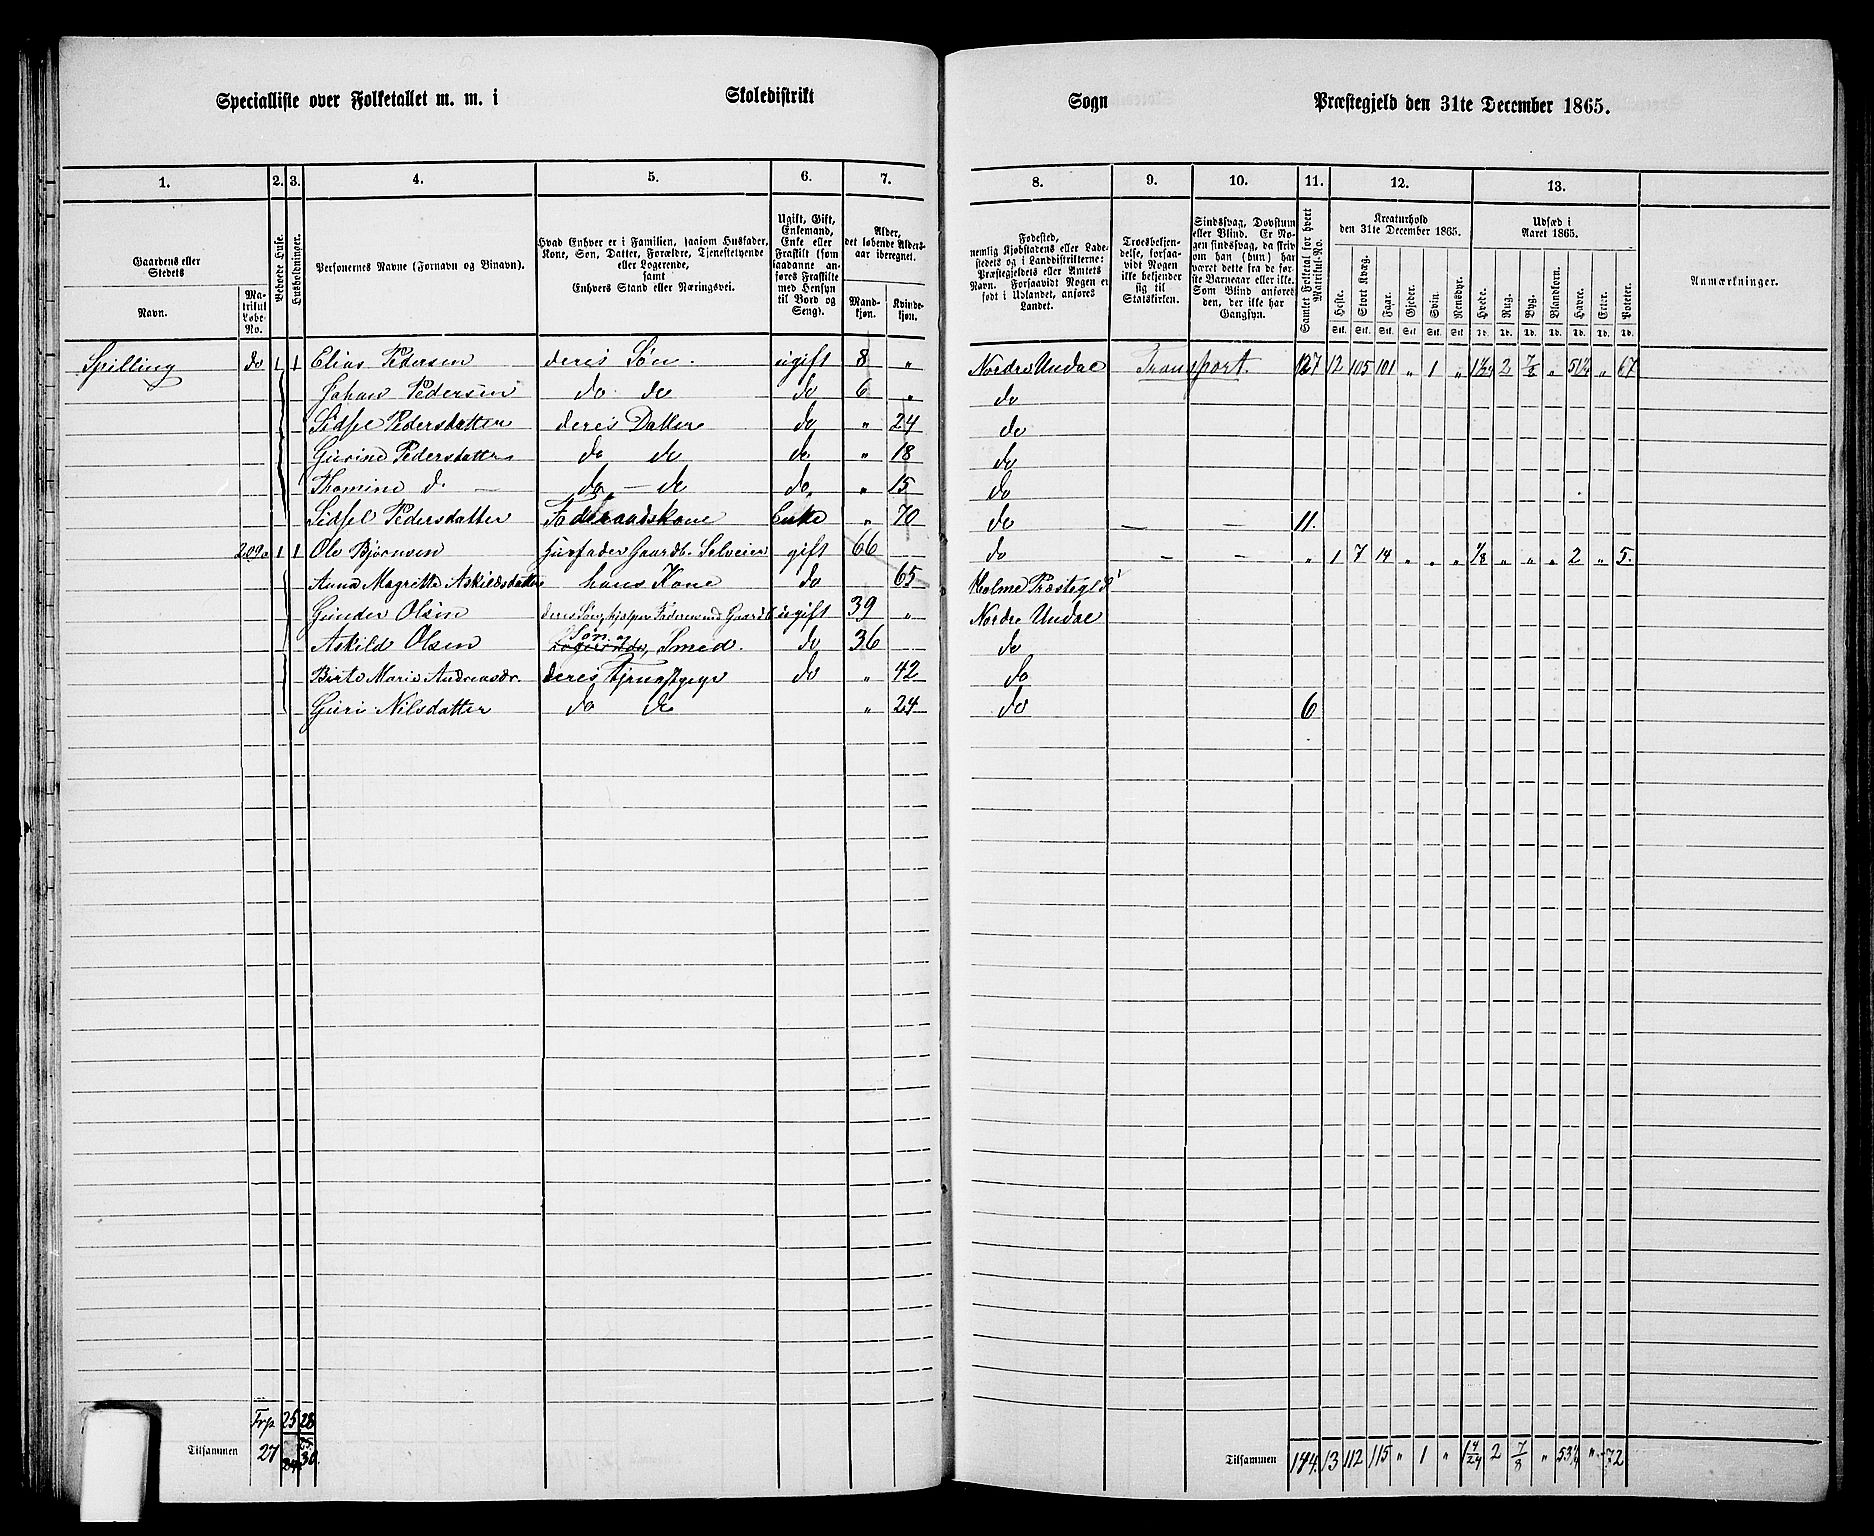 Specialliste over Folketallet m. m. i Skoledistrikt Sogn Præstegjeld den 31te December 1865.
1. 2. 3. 4. 5. 6. 7. 8. 9. 10. 11. 12. 13.
Gaardens eller Stedets
Navn.
Matrikul Løbe-No.
Bebeede Huse.
Husholdninger.
Personernes Navne (Fornavn og Binavn).
Hvad Enhver er i Familien, saasom Husfader,
Kone, Søn, Datter, Forældre, Tjenestetyende
eller Logerende,
samt
Enhvers Stand eller Næringsvei.
Ugift, Gift,
Enkemand,
Enke eller
Fraskilt (som
saadanne anføres
Fraskilte
med Hensyn
til Bord og
Seng).
Alder,
det løbende Aldersaar
iberegnet.
Mandkjøn.
Kvindekjøn.
Fødested,
nemlig Kjøbstadens eller Ladestedets
og i Landdistrikterne:
Præstegjeldets eller Amtets
Navn. Forsaavidt Nogen er
født i Udlandet, anføres
Landet.
Troesbekjendelse,
forsaavidt
Nogen
ikke bekjender
sig til
Statskirken.
Sindssvag, Døvstum
eller Blind. Er Nogen
sindssvag, da skrives
om han (hun) har
været dette fra de første
Barneaar eller ikke.
Som Blind anføres
den, der ikke har
Gangsyn.
Samlet Folketal for hvert Matrikul-No.
Kreaturhold
den 31te December 1865.
Heste. Stort Kvæg. Faar. Gjeder. Svin. Rensdyr.
Stk. Stk. Stk. Stk. Stk. Stk.
Udsæd i
Aaret 1865.
Hvede. Rug. Byg. Blandkorn. Havre. Erter. Poteter.
Td. Td. Td. Td. Td. Td. Td.
Anmærkninger.
Spilling do 1 1 Elias Pedersen deres Søn. ugift 8 " Nordre Undal Transport. 127 12 105 101 " 1 " 2 7/8 " 51 1/4 " 67
Johan Pedersen do do do 6 " do
Sidsel Pedersdatter deres Datter do " 24 do
Gurine Pedersdatter do do do " 18 do
Thomine d. — do — do do " 15 do
Sidsel Pedersdatter Føderaadskone Enke " 70 do — — 11
209 1 1 Ole Bjørnsen Husfader Gaardb. Selveier gift 66 do — — " 1 7 14 " " " 1/8 " " " 2 " 5.
Anne Magrette Askildsdatter hans Kone do 65 Holme Præstegjld
Gunder Olsen deres Søn, hjelper Faderen med Gaardb. ugift 39 " Nordre Undal
Askild Olsen Søn og Smed. do 36 do
Birte Marie Andreasdr. deres Tjenestpige do " 42 do
Guri Nilsdatter do do " 24 do 6
Frp 25 28
Tilsammen 27 30
Tilsammen 144. 13 112 115 " 1 " 1 4/24 2 7/8 " 53 1/4 " 72